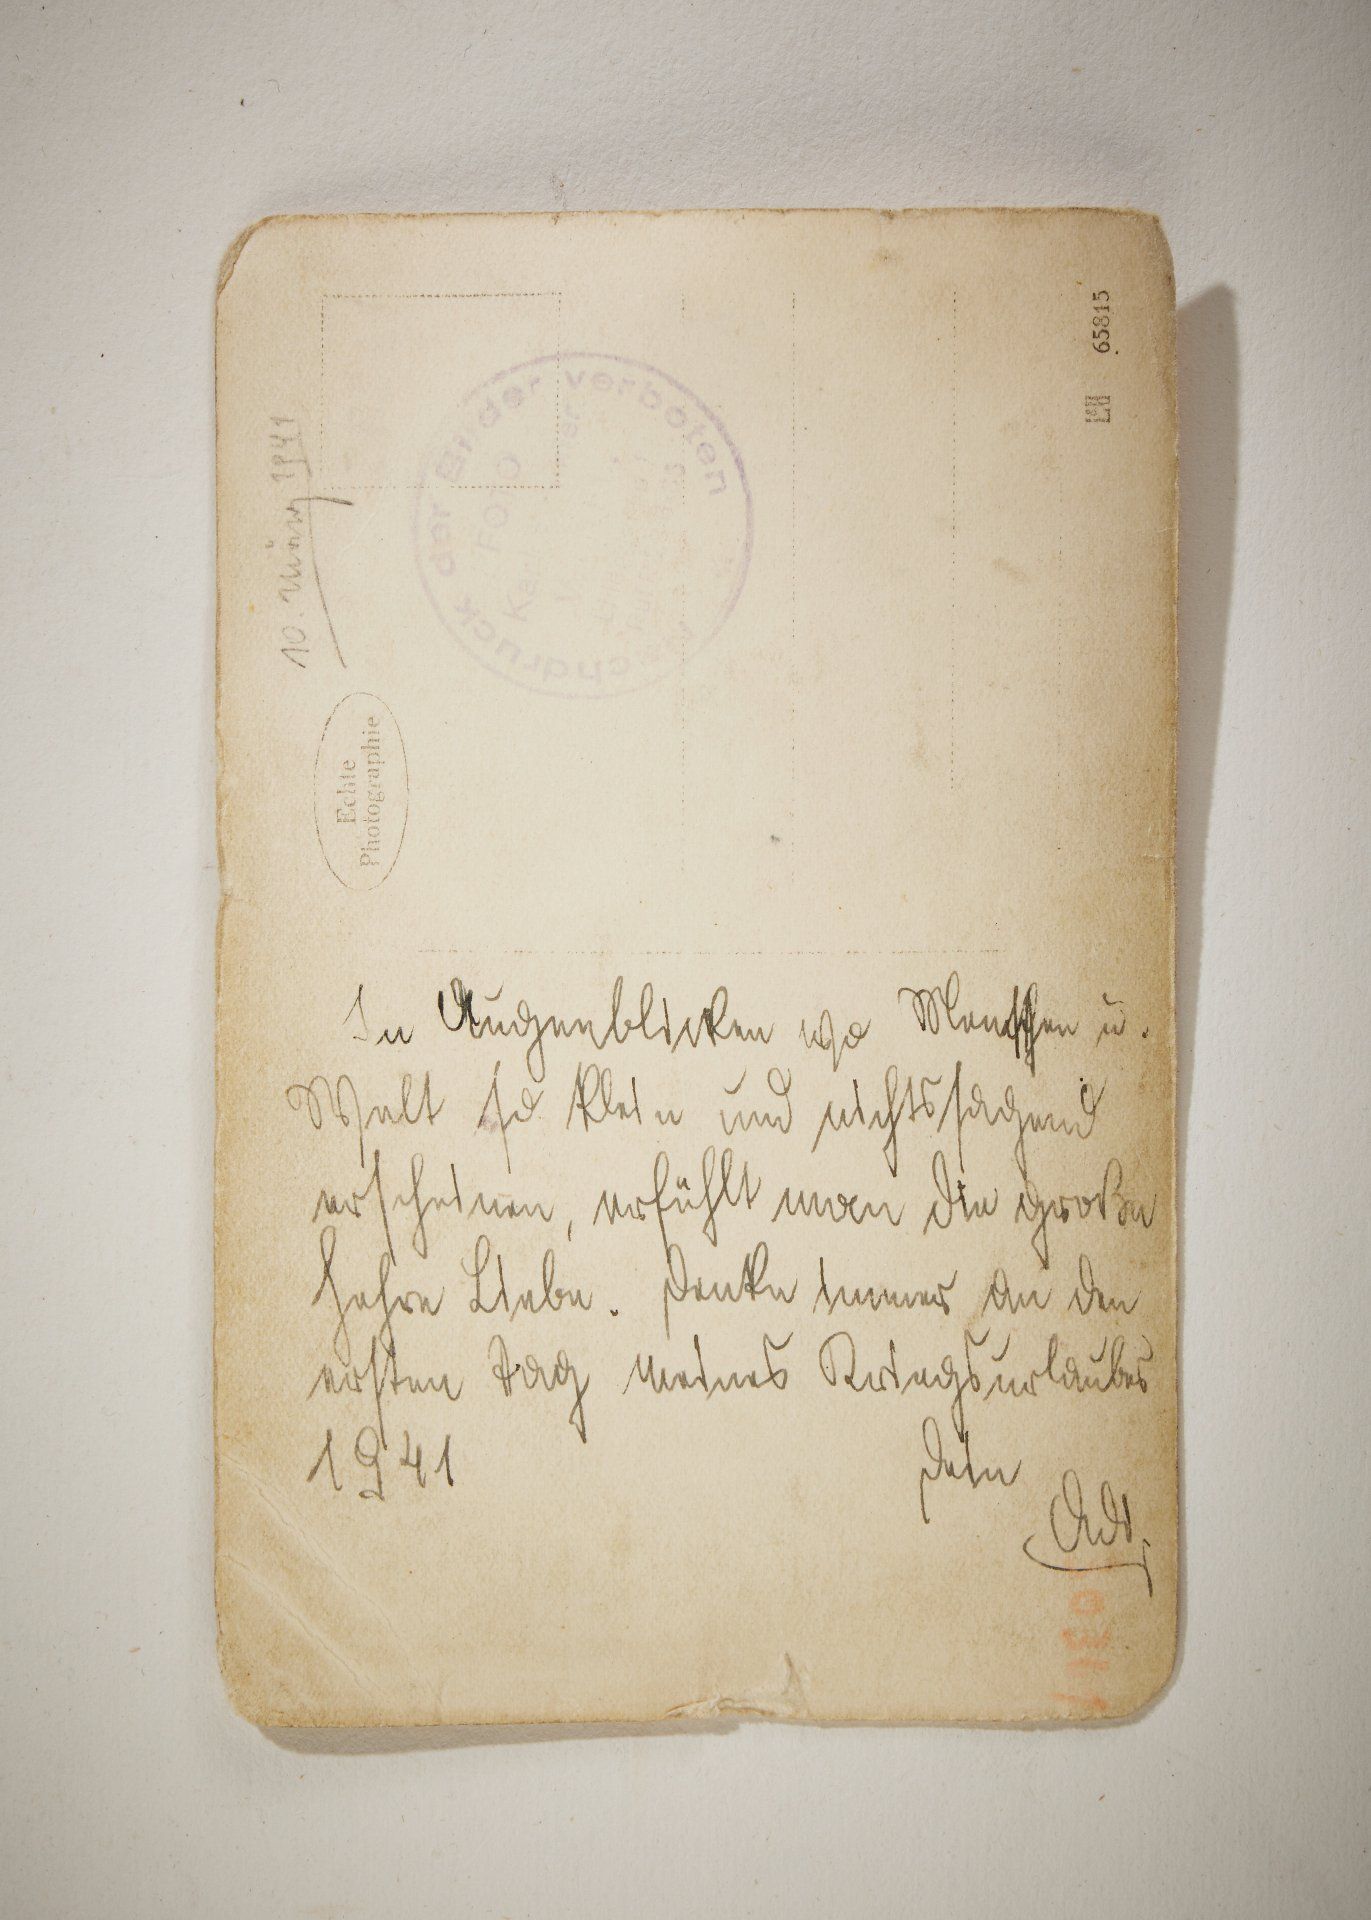 65815
10. März 1941
Nachdruck der Bilder verboten
Foto
Echte
Photographie
In Augenblicken wo Menschen u.
Welt so klein und nichtssagend
erscheinen, erfühlt man die große
hehre Liebe. Denke immer an den
ersten Tag meines Kriegsurlaubes
1941 Dein
Adi